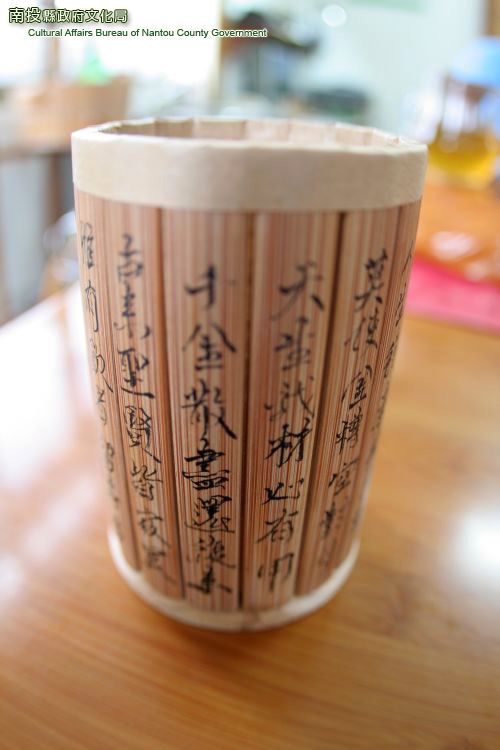 南投縣政府文化局
Cultural Affairs Bureau of Nantou County Government
人生
莫使金樽空對月
天生我材必有用
千金散盡還復來
古來聖賢皆寂寞
惟有飲者留